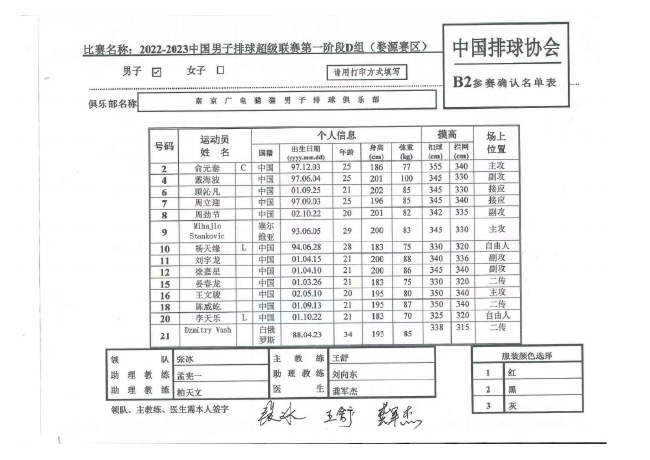 比赛名称：2022-2023中国男子排球超级联赛第一阶段D组（婺源赛区）
中国排球协会
B2参赛确认名单表
男子 ☑ 女子 ☐
请用打印方式填写
俱乐部名称 南京广电猫猫男子排球俱乐部
号码 运动员姓名 个人信息 摸高 场上位置
国籍 出生日期(yyyy.mm.dd) 年龄 身高(cm) 体重(kg) 扣球(cm) 拦网(cm)
2 俞元泰 C 中国 97.12.03 25 186 77 355 340 主攻
4 戴海波 中国 97.06.04 25 201 100 345 330 副攻
6 顾沁凡 中国 01.09.25 21 202 85 345 330 接应
7 周立迎 中国 97.09.03 25 196 85 345 340 接应
8 周劲节 中国 02.10.22 20 201 82 342 335 副攻
9 Mihajlo Stankovic 塞尔维亚 93.06.05 29 200 83 345 330 主攻
10 杨天缘 L 中国 94.06.28 28 183 75 330 320 自由人
11 刘宇龙 中国 01.04.15 21 200 88 340 336 副攻
12 徐嘉星 中国 01.04.10 21 200 86 345 340 副攻
15 晏春龙 中国 01.03.26 21 183 75 330 320 二传
16 王文骏 中国 02.05.10 20 195 80 350 340 主攻
18 陈威屹 中国 01.09.13 21 195 87 350 340 二传
20 李天乐 L 中国 01.10.22 21 183 70 325 320 自由人
21 Dzmitry Vash 白俄罗斯 88.04.23 34 193 85 338 315 二传
领队 张冰 主教练 王舒
助理教练 孟宪一 助理教练 刘向东
助理教练 柏天文 医生 龚军杰
服装颜色选择
1 红
2 黑
3 灰
领队、主教练、医生需本人签字
张冰 王舒 龚军杰